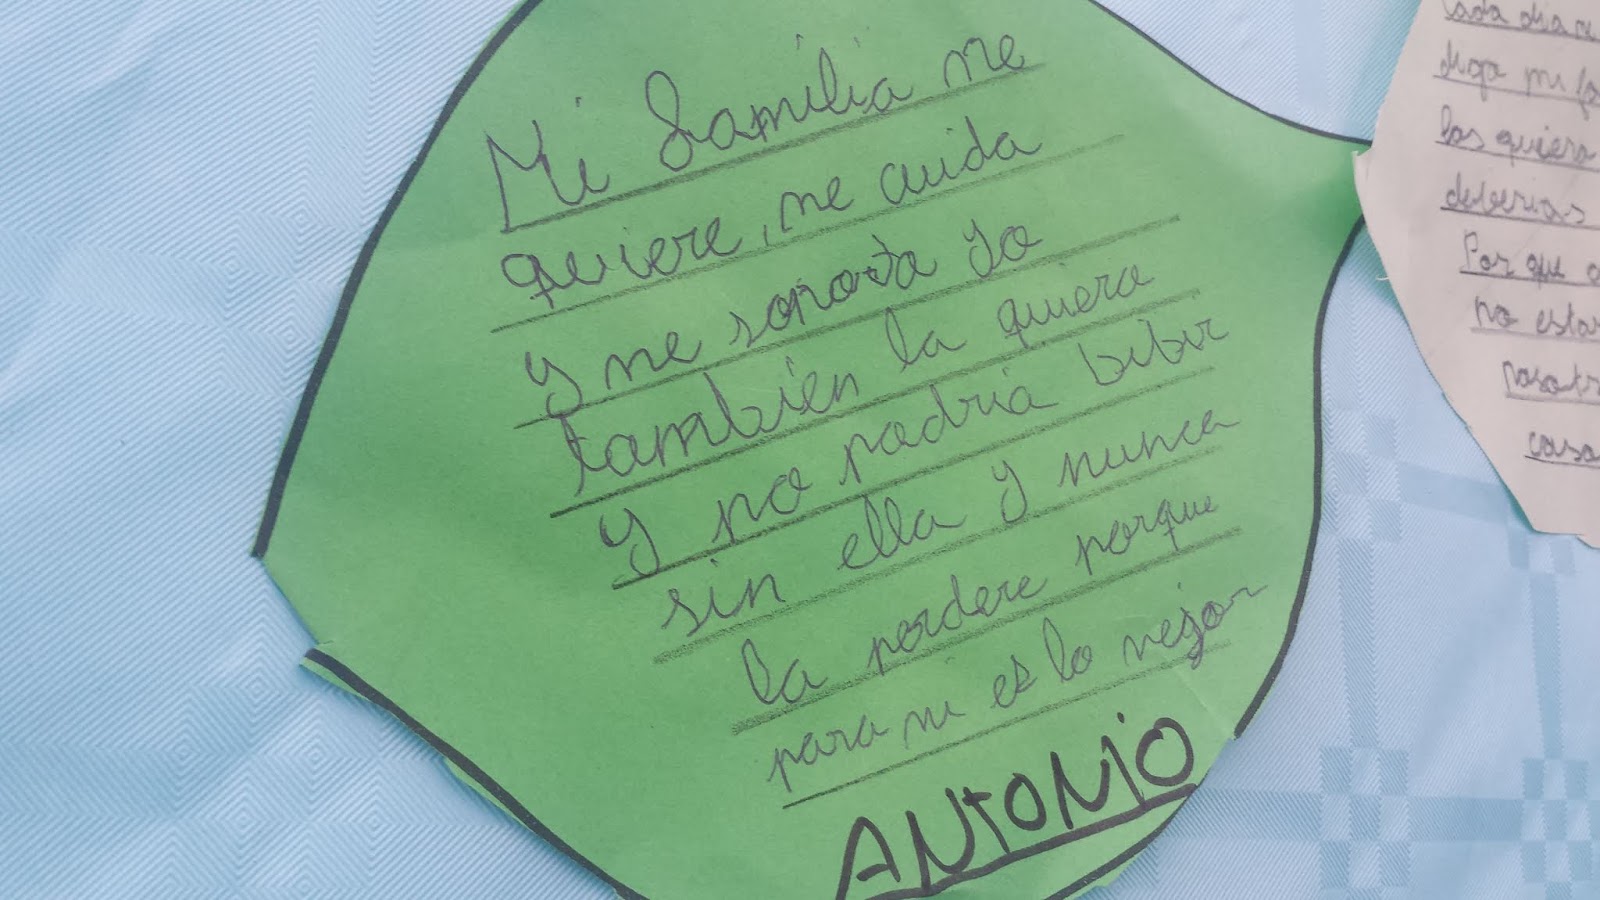 Mi familia me
quiere, me cuida
y me soporta yo
también la quiero
y no podria bibir
sin ella y nunca
la perdere porque
para mi es lo mejor
ANTONIO
Cada dia
diga mi
los quiero
deberias
Por que
no estar